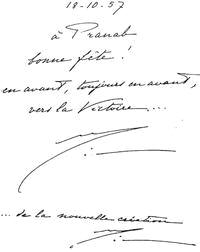 18-10-57
à Pranab
bonne fête!
en avant, toujours en avant,
vers la Victoire...
...de la nouvelle création